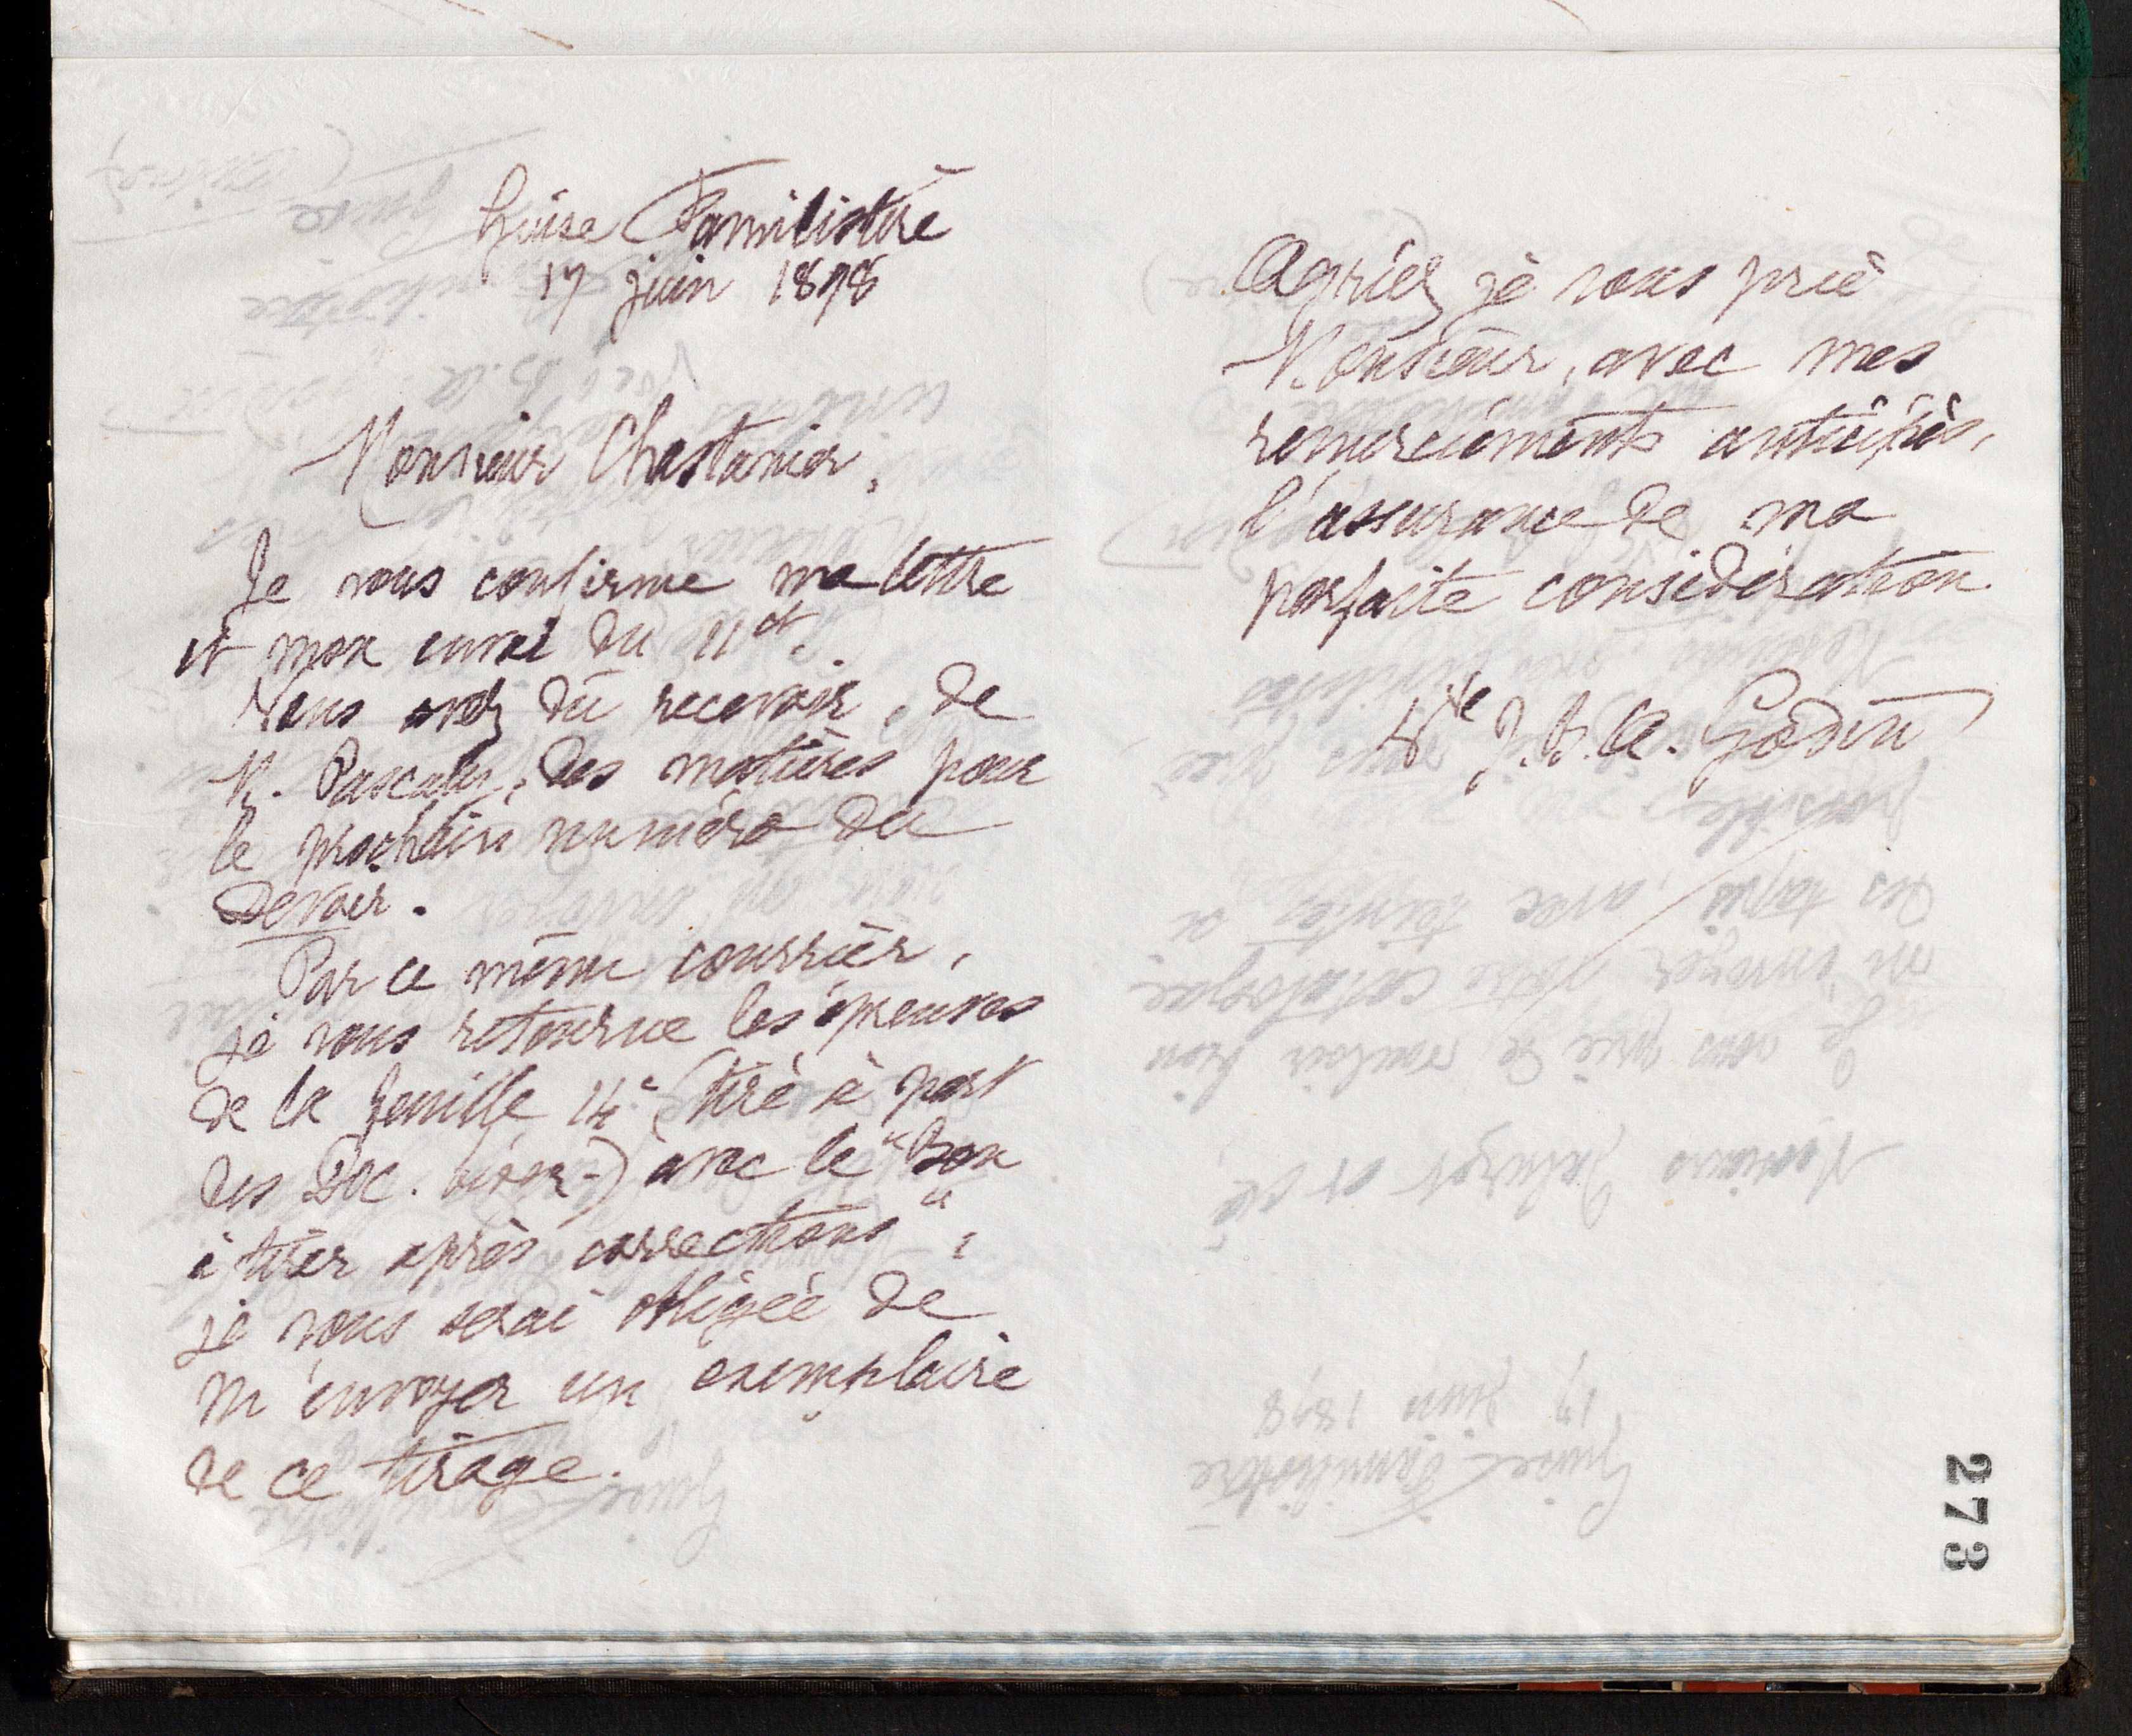 Guise Familistère
17 juin 1898
Monsieur Chastanier,
Je vous confirme ma lettre
et mon envoi du 11 ct.
Vous avez dû recevoir, de
M. Pascaly, des matières pour
le prochain numéro du
Devoir.
Par ce même courrier,
je vous retourne les épreuves
de la feuille 14e (tiré à part
des Doc. biog.) avec le "bon
à tirer après corrections",
je vous serai obligée de
m'envoyer un exemplaire
de ce tirage.
Agréez je vous prie
Monsieur, avec mes
remerciements anticipés,
l'assurance de ma
parfaite considération.
Vve J. B. A. Godin
273